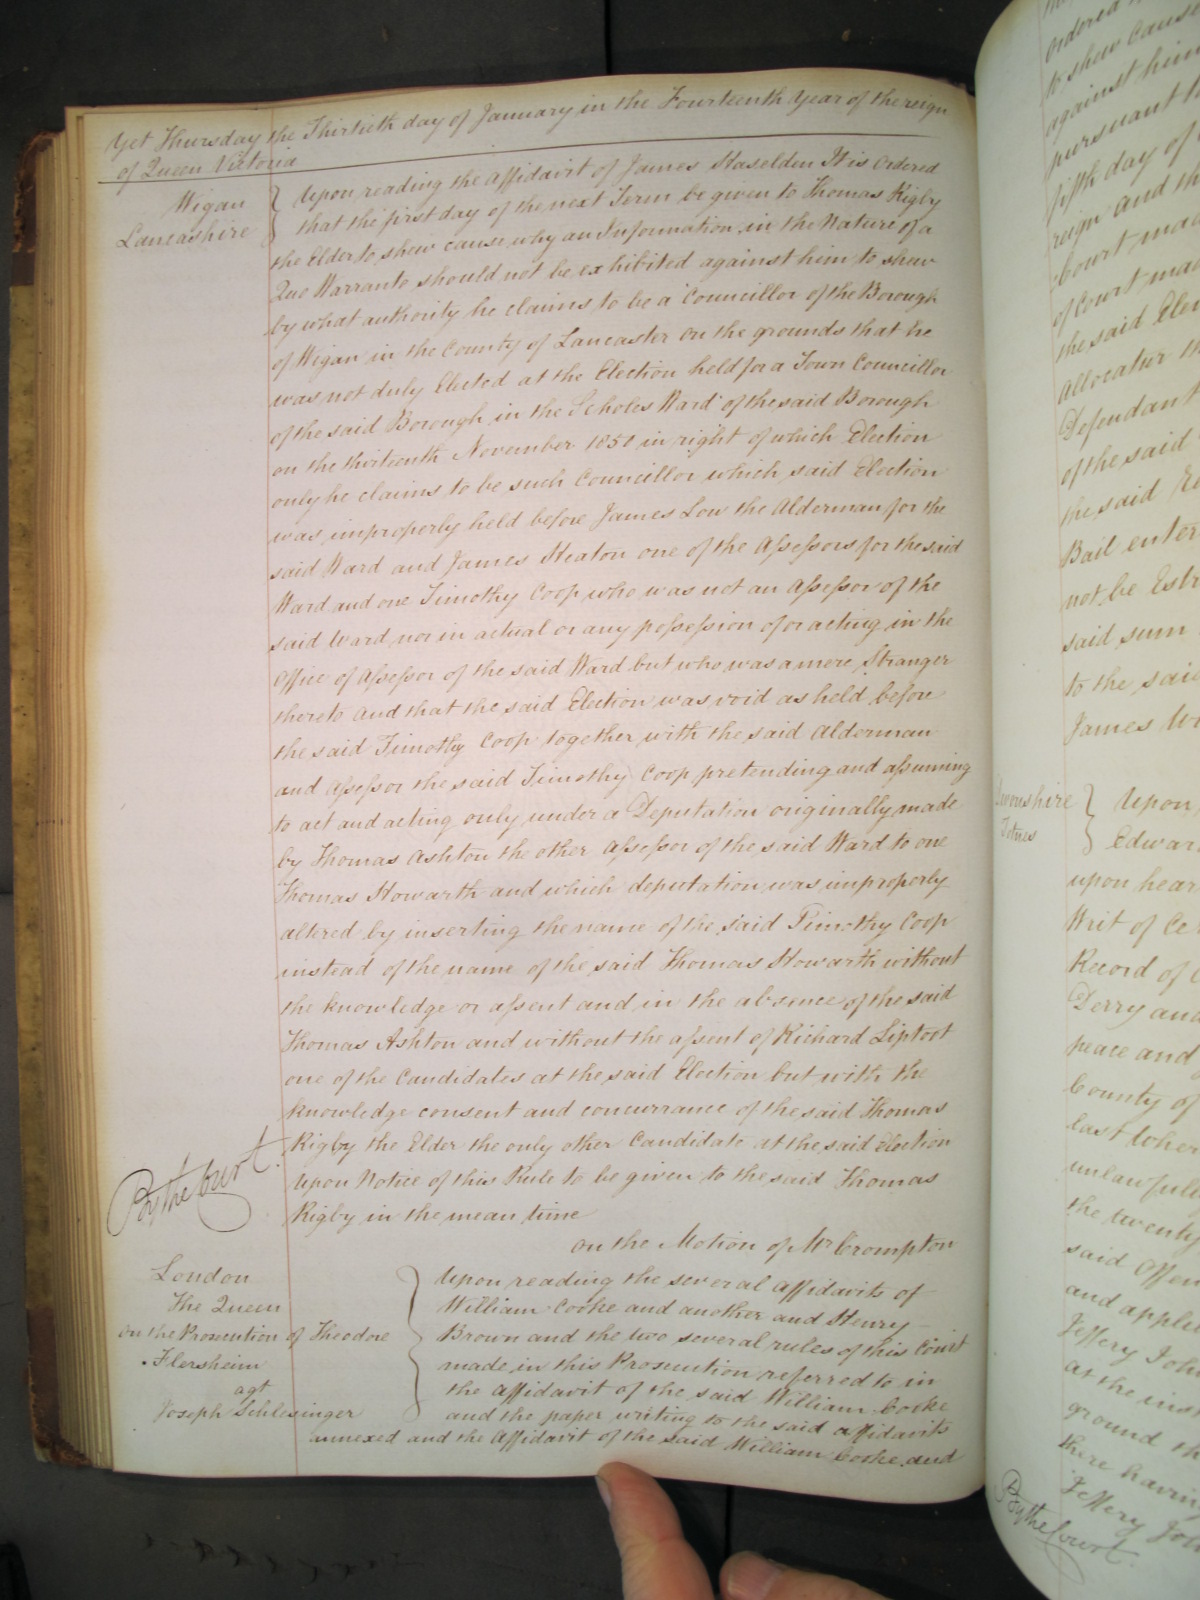 Yet Thursday the Thirtieth day of January in the Fourteenth Year of the reign
of Queen Victoria
Wigan
Lancashire
Upon reading the Affidavit of James Haselden It is Ordered
that the first day of the next Term be given to Thomas Rigby
the Elder to shew cause why an Information in the Nature of a
Quo Warranto should not be exhibited against him to shew
by what authority he claims to be a Councillor of the Borough
of Wigan in the County of Lancaster on the grounds that he
was not duly Elected at the Election held for a Town Councillor
of the said Borough in the Scholes Ward of the said Borough
on the thirteenth November 1850 in right of which Election
only he claims to be such Councillor which said Election
was improperly held before James Low the Alderman for the
said Ward and James Heaton one of the Assessors for the said
Ward and one Timothy Coop who was not an Assessor of the
said Ward nor in actual or any possession of or acting in the
Office of Assessor of the said Ward but who was a mere Stranger
thereto and that the said Election was void as held before
the said Timothy Coop together with the said Alderman
and Assessor the said Timothy Coop pretending and assuming
to act and acting only under a Deputation originally made
by Thomas Ashton the other Assessor of the said Ward to one
Thomas Howarth and which deputation was improperly
altered by inserting the name of the said Timothy Coop
instead of the name of the said Thomas Howarth without
the knowledge or assent and in the absence of the said
Thomas Ashton and without the assent of Richard Liptrot
one of the Candidates at the said Election but with the
knowledge consent and concurrance of the said Thomas
Rigby the Elder the only other Candidate at the said Election
upon Notice of this Rule to be given to the said Thomas
Rigby in the mean time
on the Motion of Mr Crompton
By the Court
London
The Queen
on the Prosecution of Theodore
Flersheim
agt
Joseph Schlesinger
Upon reading the several affidavits of
William Cooke and another and Henry
Brown and the two several rules of this Court
made in this Prosecution referred to in
the affidavit of the said William Cooke
and the paper writing to the said affidavits
annexed and the Affidavit of the said William Cooke and
ordered
to shew cause
against him
pursuant
fifth day of
reign and
Court made
of Court made
the said
allocatur
Defendant
of the said
the said
Bail
not be
said sum
to the said
James
Devonshire
Totnes
Upon
Edward
upon
Writ of
Record of
Derry and
peace and
County of
last
unlawfully
the twenty
said
and
Jeffery John
at the
ground
there having
Jeffery John
By the Court